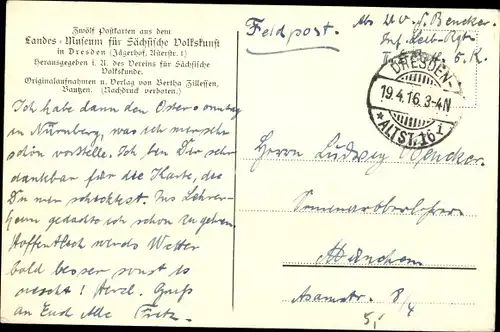 Zwölf Postkarten aus dem
Landes-Museum für Sächsische Volkskunst
in Dresden (Jägerhof, Asterstr. 1)
Herausgegeben i. A. des Vereins für Sächsische
Volkskunde.
Originalaufnahmen u. Verlag von Bertha Zillessen,
Bautzen. (Nachdruck verboten.)
Feldpost.
Abs. U. V. S. Bencker.
Inf. Leib-Rgt.
5. K.
DRESDEN-
19.4.16.3-4N
*ALTST.16
Ich habe dann den Ostersonntag
in Nürnberg, was ich mir sehr
schön vorstelle. Ich bin Dir sehr
dankbar für die Karte, die
Du mir schicktest. Ins Lehrer-
heim gedachte ich schon zu gehen.
Hoffentlich wirds Wetter
bald besser sonst is
nescht! Herzl. Gruß
an Euch Alle Fritz.
Herrn Ludwig Bencker.
Seminaroberlehrer
München
Asamstr. 8/4
5,